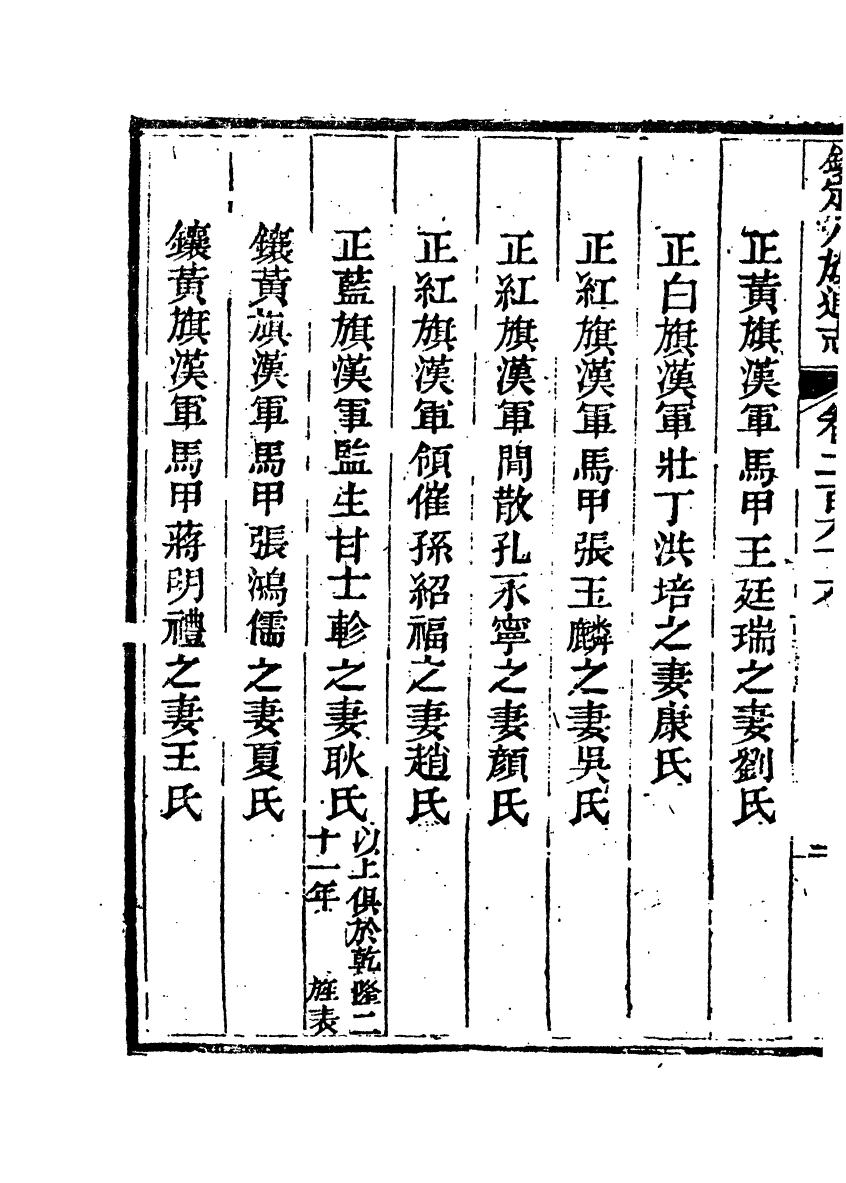 欽定八旗通志 卷二百六十六 二
正黃旗漢軍馬甲王廷瑞之妻劉氏
正白旗漢軍壯丁洪培之妻康氏
正紅旗漢軍馬甲張玉麟之妻吳氏
正紅旗漢軍閒散孔永寧之妻顏氏
正紅旗漢軍領催孫紹福之妻趙氏
正藍旗漢軍監生甘士軫之妻耿氏
以上俱於乾隆二
十一年 旌表
鑲黃旗漢軍馬甲張鴻儒之妻夏氏
鑲黃旗漢軍馬甲蔣明禮之妻王氏